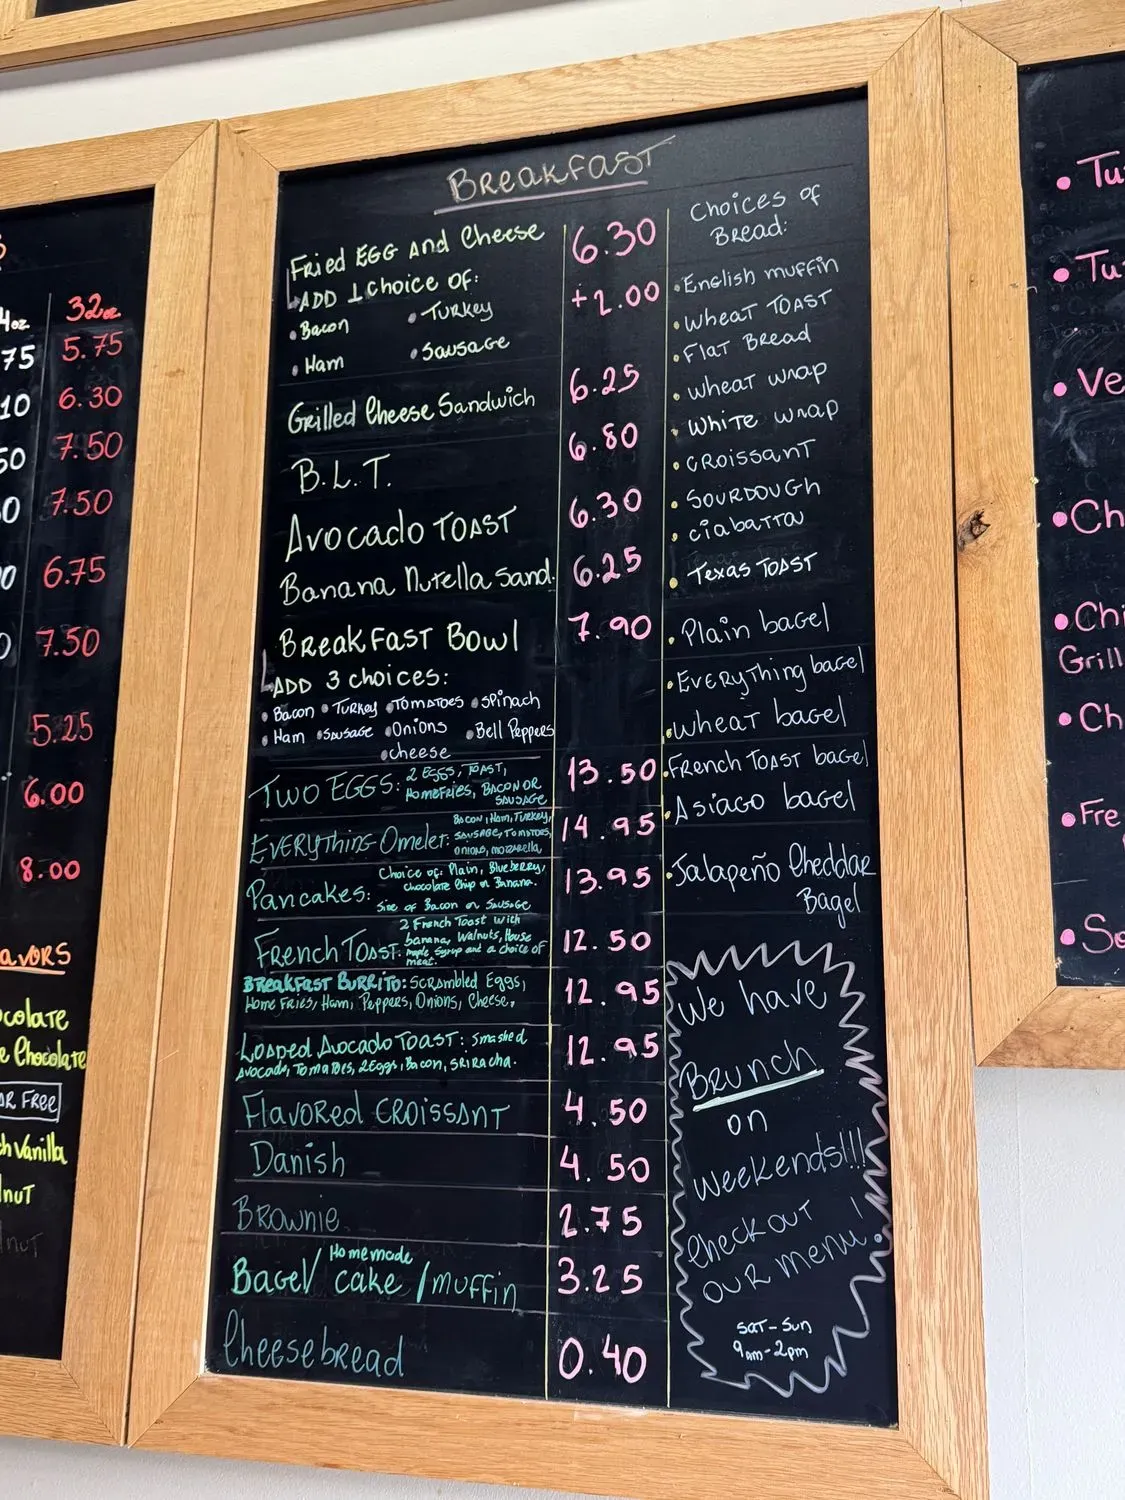 4oz. 32oz
75 5.75
10 6.30
50 7.50
0 7.50
6.75
7.50
5.25
6.00
8.00
avors
colate
e Chocolate
ar Free
ch Vanilla
lnut
Breakfast
Fried Egg and Cheese 6.30
Add 1 choice of: +2.00
• Bacon • Turkey
• Ham • Sausage
Grilled Cheese Sandwich 6.25
B.L.T. 6.80
Avocado Toast 6.30
Banana Nutella Sand. 6.25
Breakfast Bowl 7.90
Add 3 choices:
• Bacon • Turkey • Tomatoes • Spinach
• Ham • Sausage • Onions • Bell Peppers
• cheese
Two Eggs: 2 Eggs, Toast, 13.50
Homefries, Bacon or
Sausage
Everything Omelet: Bacon, Ham, Turkey, 14.95
Sausage, Tomatoes,
onions, mozzarella,
Pancakes: Choice of: Plain, Blueberry, 13.95
chocolate Chip or Banana.
Side of Bacon or Sausage
French Toast: 2 French Toast with 12.50
banana, Walnuts, House
maple Syrup and a choice of
meat.
Breakfast Burrito: Scrambled Eggs, 12.95
Home Fries, Ham, Peppers, Onions, Cheese,
Loaded Avocado Toast: Smashed 12.95
Avocado, Tomatoes, 2 Eggs, Bacon, Sriracha.
Flavored Croissant 4.50
Danish 4.50
Brownie 2.75
Bagel/ Homemade cake /muffin 3.25
Cheesebread 0.40
Choices of
Bread:
• English muffin
• Wheat Toast
• Flat Bread
• wheat wrap
• White wrap
• Croissant
• Sourdough
• ciabatta
• Texas Toast
• Plain bagel
• Everything bagel
• Wheat bagel
• French Toast bagel
• Asiago bagel
• Jalapeño Cheddar
Bagel
We have
Brunch
on
weekends!!!
Check out
our menu!
Sat-Sun
9am-2pm
• Tu
• Tu
• Ve
• Ch
• Chi
Grill
• Ch
• Fre
• So